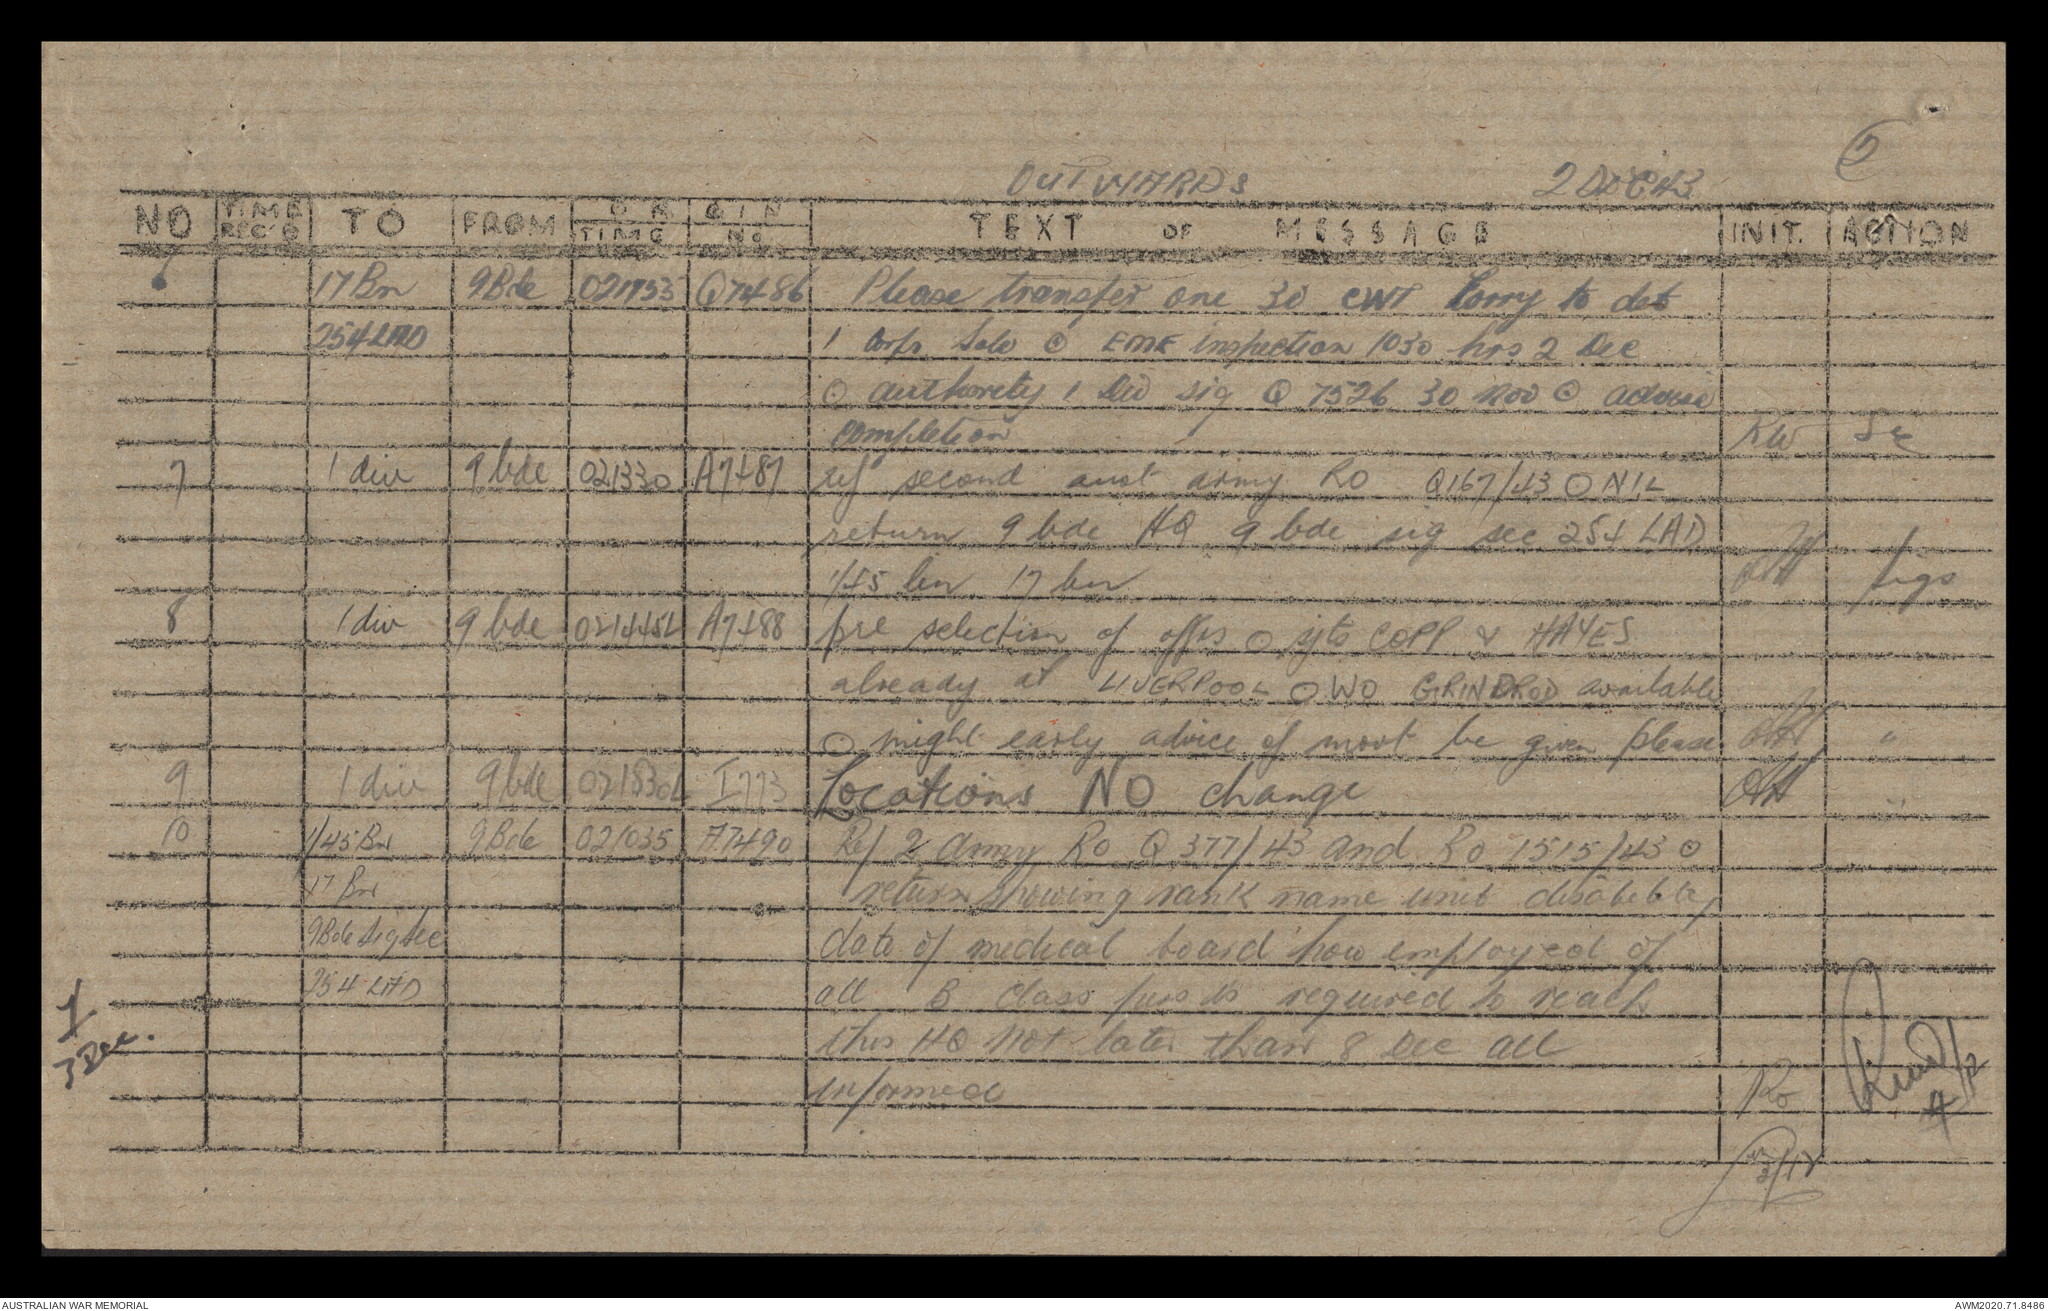 2
OUTWARDS 2 DEC 43
NO TIME REC'D TO FROM ORIGIN TIME No TEXT OF MESSAGE INIT. ACTION
6 17 Bn 9 Bde Q7486 Please transfer one 30 CWT Lorry to det
254 LAD 1 ⊙ EME inspection 1030 hrs 2 Dec
⊙ authority 1 Div sig Q 7526 30 Nov ⊙ advise
completion KW
7 1 div 9 bde 021330 A7487 ref second aust army RO Q167/43 ⊙ NIL
return 9 bde HQ 9 bde sig sec 254 LAD
1/45 bn 17 bn Sigs
8 1 div 9 bde 021445L A7488 pre selection of offrs ⊙ sjts COPP & HAYES
already at LIVERPOOL ⊙ WO GRINDROD available
⊙ might early advice of movt be given please "
9 1 div 9 bde 021830L I773 Locations NO change "
10 1/45 Bn 9 Bde 021035 A7490 Ref 2 Army Ro Q 377/43 and Ro 1515/43 ⊙
17 Bn return showing rank name unit disability
9 Bde Sig Sec date of medical board how employed of
254 LAD all B class pers is required to reach
this HQ not later than 8 Dec all
informed
3 Dec.
3/12
AUSTRALIAN WAR MEMORIAL AWM2020.71.8486